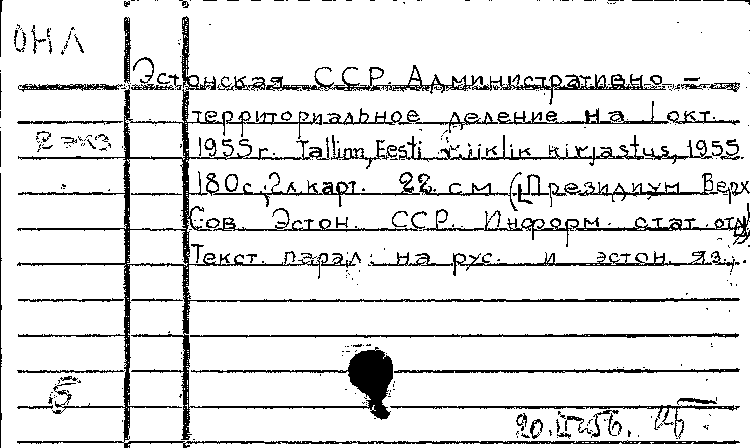 ОНЛ
Эстонская ССР. Административно-
территориальное деление на 1 окт.
2 экз
1955г. Tallinn, Eesti riiklik kirjastus, 1955
180с.; 2л.карт. 22 см (Президиум Верх
Сов. Эстон. ССР. Информ. стат. отд.)
Текст парал. на рус. и эстон. яз.
Б
20.IV-56.